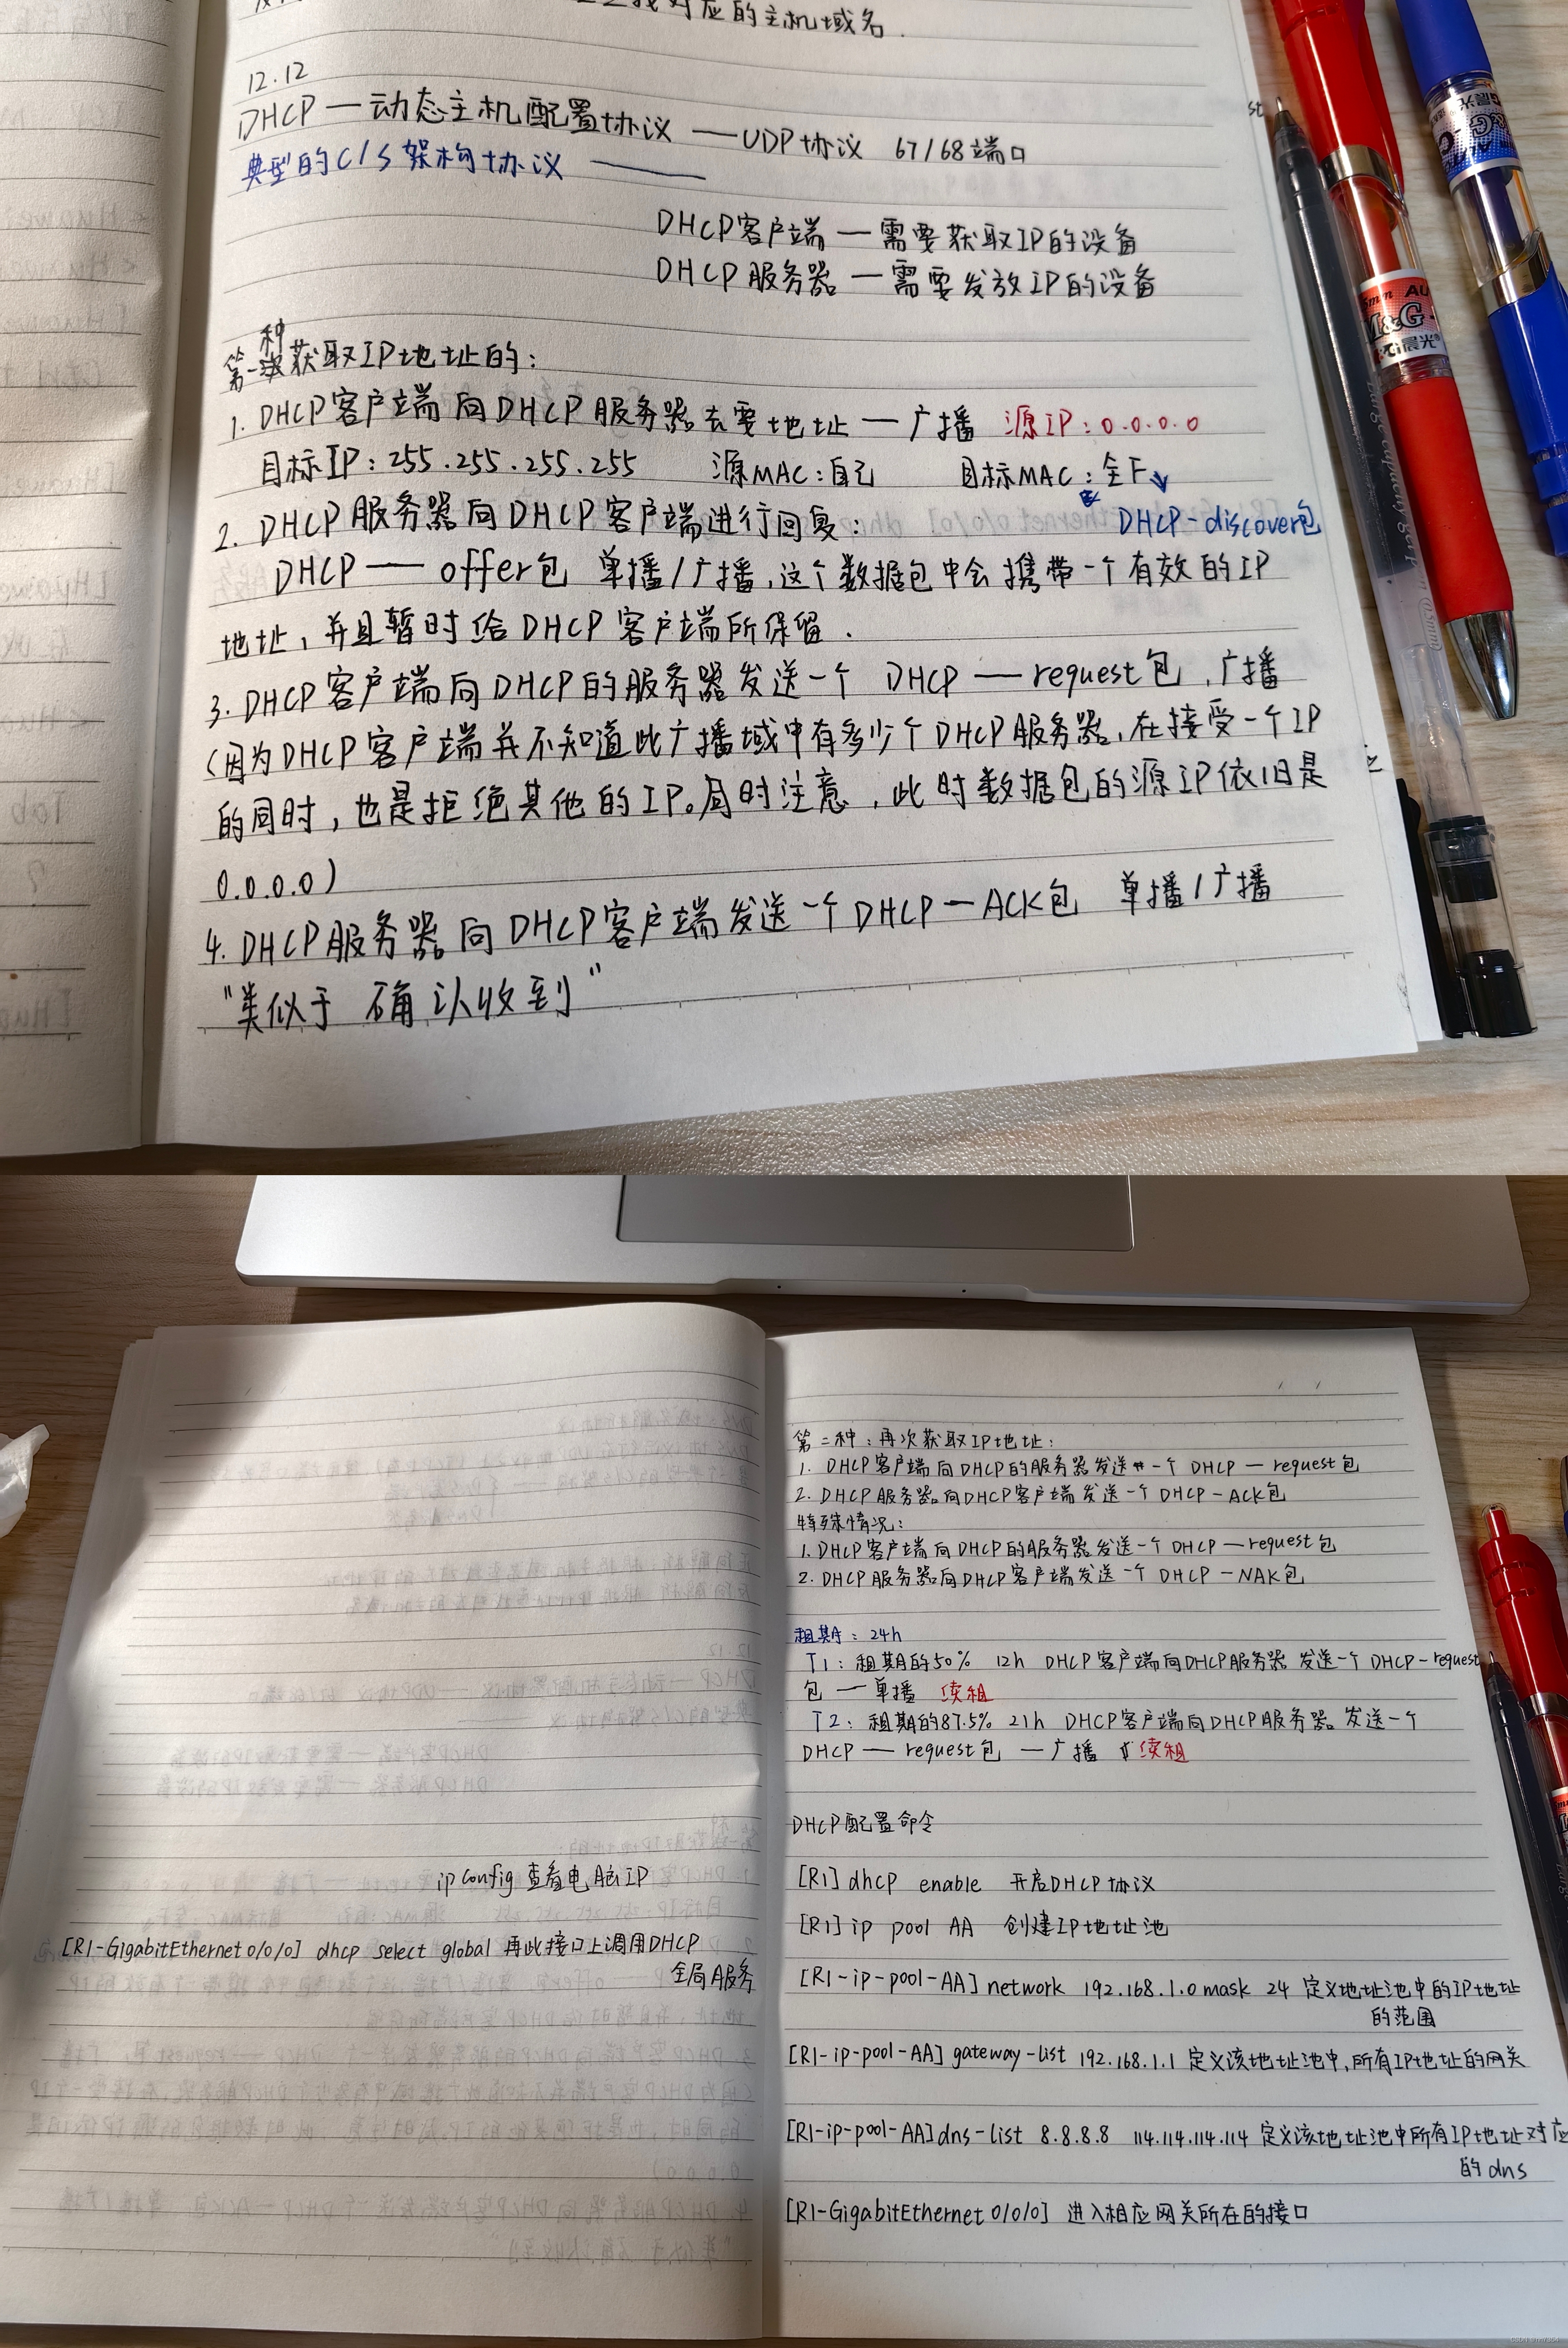 对应的主机域名.
12.12
DHCP — 动态主机配置协议 — UDP协议 67/68端口
典型的C/S架构协议 ——
DHCP客户端 — 需要获取IP的设备
DHCP服务器 — 需要发放IP的设备
第一种获取IP地址的:
1. DHCP客户端向DHCP服务器去要地址 — 广播 源IP:0.0.0.0
目标IP:255.255.255.255 源MAC:自己 目标MAC:全F
2. DHCP服务器向DHCP客户端进行回复: DHCP-discover包
DHCP — offer包 单播/广播,这个数据包中会携带一个有效的IP
地址,并且暂时给DHCP客户端所保留.
3. DHCP客户端向DHCP的服务器发送一个 DHCP — request包,广播
(因为DHCP客户端并不知道此广播域中有多少个DHCP服务器,在接受一个IP
的同时,也是拒绝其他的IP。同时注意,此时数据包的源IP依旧是
0.0.0.0)
4. DHCP服务器向DHCP客户端发送一个DHCP — ACK包 单播/广播
"类似于 确认收到"
M&G
晨光
第二种:再次获取IP地址:
1. DHCP客户端向DHCP的服务器发送一个 DHCP — request包
2. DHCP服务器向DHCP客户端发送一个 DHCP — ACK包
特殊情况:
1. DHCP客户端向DHCP的服务器发送一个 DHCP — request包
2. DHCP服务器向DHCP客户端发送一个 DHCP — NAK包
租期:24h
T1:租期的50% 12h DHCP客户端向DHCP服务器发送一个DHCP-request
包 — 单播 续租
T2:租期的87.5% 21h DHCP客户端向DHCP服务器发送一个
DHCP — request包 — 广播 续租
DHCP配置命令
[R1]dhcp enable 开启DHCP协议
[R1]ip pool AA 创建IP地址池
[R1-ip-pool-AA]network 192.168.1.0 mask 24 定义地址池中的IP地址
的范围
[R1-ip-pool-AA]gateway-list 192.168.1.1 定义该地址池中,所有IP地址的网关
[R1-ip-pool-AA]dns-list 8.8.8.8 114.114.114.114 定义该地址池中所有IP地址对应
的dns
[R1-GigabitEthernet0/0/0] 进入相应网关所在的接口
ipconfig 查看电脑IP
[R1-GigabitEthernet0/0/0] dhcp select global 再此接口上调用DHCP
全局服务